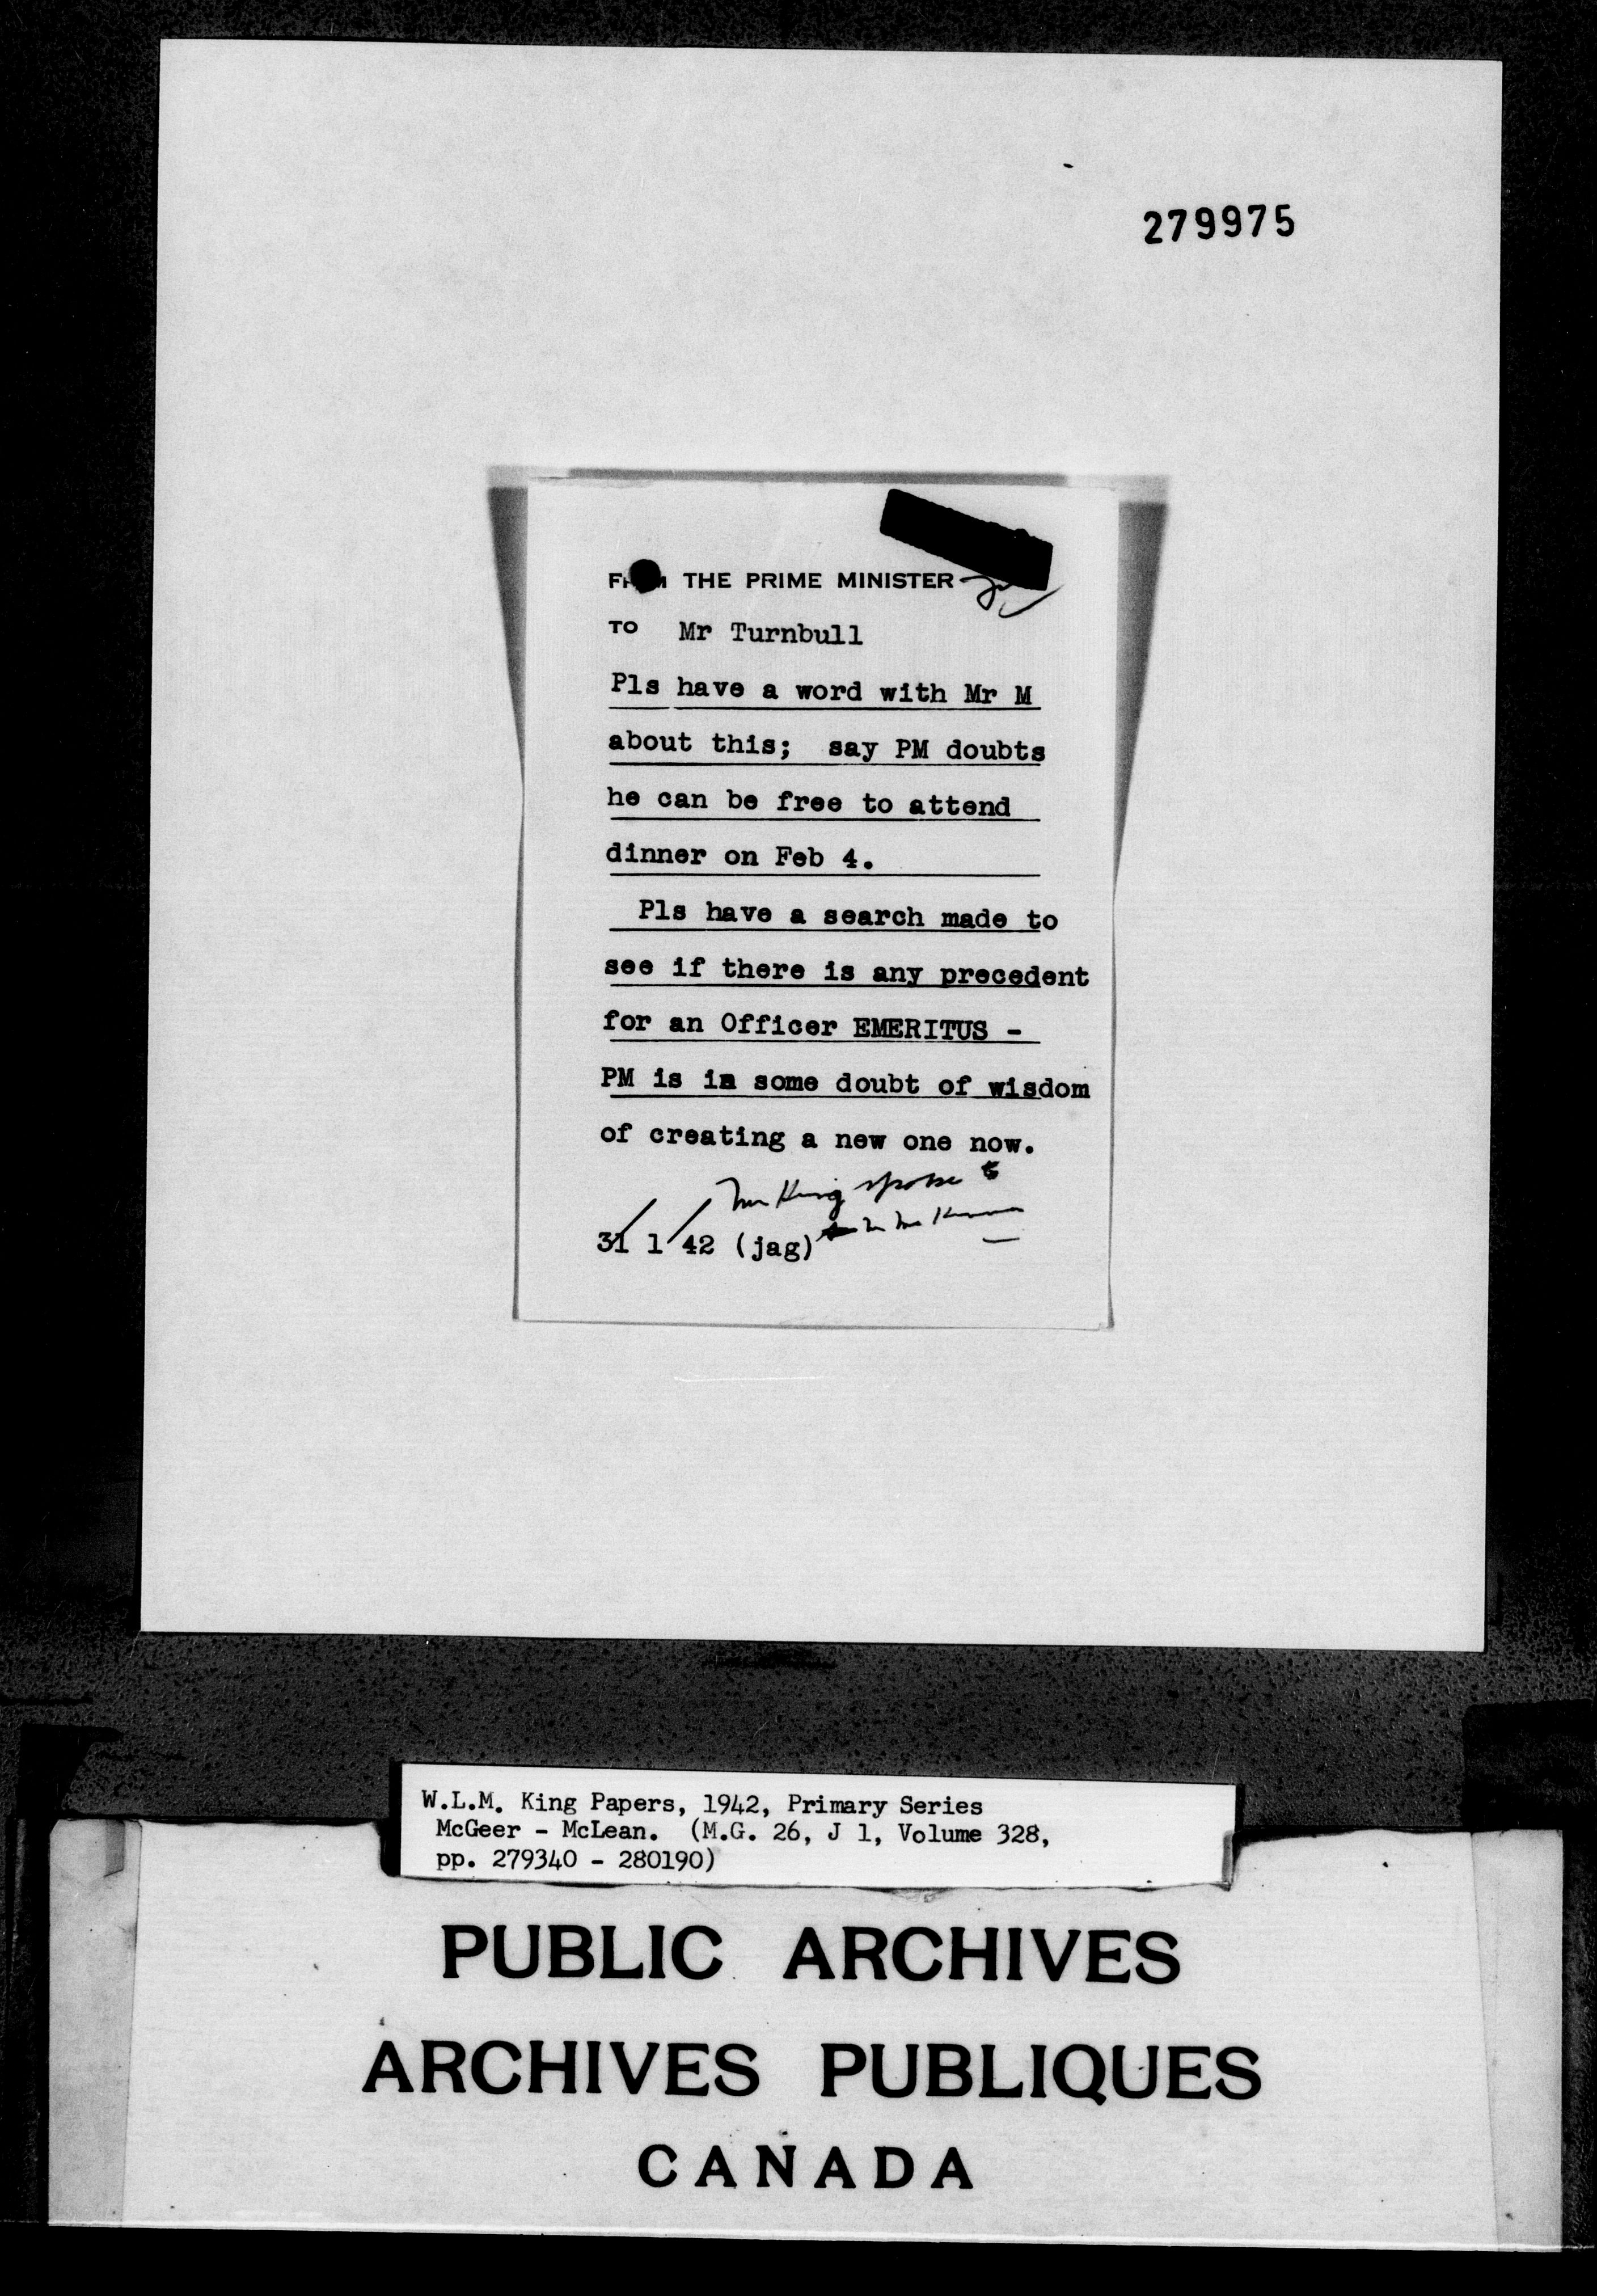 279975
FROM THE PRIME MINISTER
TO Mr Turnbull
Pls have a word with Mr M
about this; say PM doubts
he can be free to attend
dinner on Feb 4.
Pls have a search made to
see if there is any precedent
for an Officer EMERITUS -
PM is in some doubt of wisdom
of creating a new one now.
Mr King spoke to
31/1/42 (jag)
W.L.M. King Papers, 1942, Primary Series
McGeer - McLean. (M.G. 26, J 1, Volume 328,
pp. 279340 - 280190)
PUBLIC ARCHIVES
ARCHIVES PUBLIQUES
CANADA